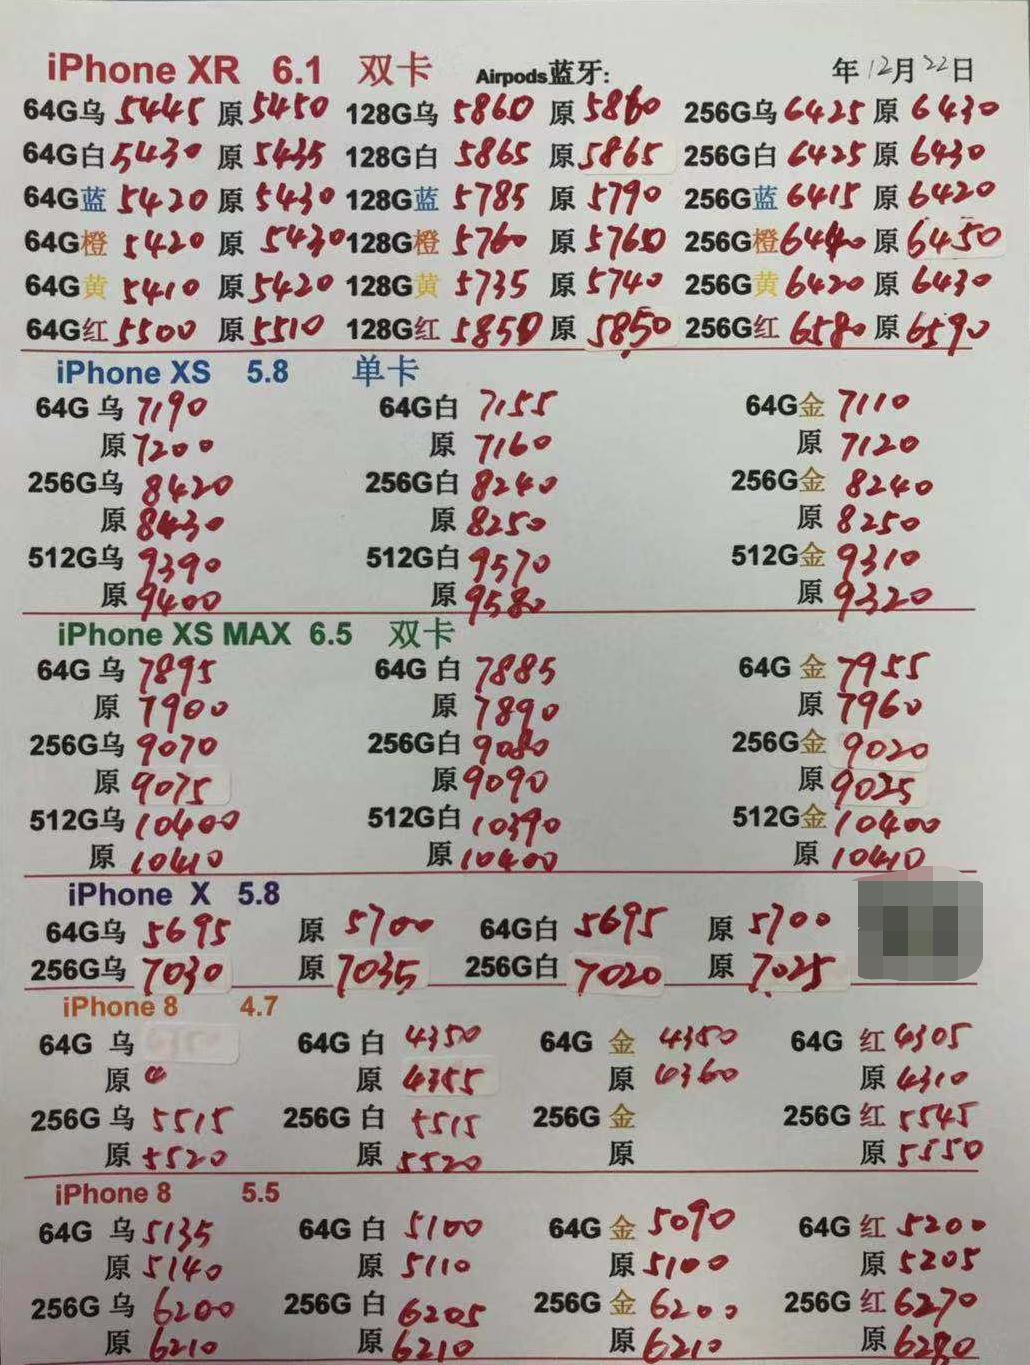 iPhone XR 6.1 双卡 Airpods蓝牙: 年12月22日
64G乌 5445 原 5450 128G乌 5860 原 5860 256G乌 6425 原 6430
64G白 5430 原 5435 128G白 5865 原 5865 256G白 6425 原 6430
64G蓝 5420 原 5430 128G蓝 5785 原 5790 256G蓝 6415 原 6420
64G橙 5420 原 5430 128G橙 5760 原 5760 256G橙 6440 原 6450
64G黄 5410 原 5420 128G黄 5735 原 5740 256G黄 6420 原 6430
64G红 5500 原 5510 128G红 5850 原 5850 256G红 6580 原 6590
iPhone XS 5.8 单卡
64G 乌 7190 64G白 7155 64G金 7110
原 7200 原 7160 原 7120
256G乌 8420 256G白 8240 256G金 8240
原 8430 原 8250 原 8250
512G乌 9390 512G白 9570 512G金 9310
原 9400 原 9580 原 9320
iPhone XS MAX 6.5 双卡
64G 乌 7895 64G 白 7885 64G 金 7955
原 7900 原 7890 原 7960
256G乌 9070 256G白 9080 256G金 9020
原 9075 原 9090 原 9025
512G乌 10400 512G白 10390 512G金 10400
原 10410 原 10400 原 10410
iPhone X 5.8
64G乌 5695 原 5700 64G白 5695 原 5700
256G乌 7030 原 7035 256G白 7020 原 7025
iPhone 8 4.7
64G 乌 64G 白 4350 64G 金 4350 64G 红 4305
原 原 4355 原 4360 原 4310
256G 乌 5515 256G 白 5515 256G 金 256G 红 5545
原 5520 原 5520 原 原 5550
iPhone 8 5.5
64G 乌 5135 64G 白 5100 64G 金 5090 64G 红 5200
原 5140 原 5110 原 5100 原 5205
256G 乌 6200 256G 白 6205 256G 金 6200 256G 红 6270
原 6210 原 6210 原 6210 原 6280